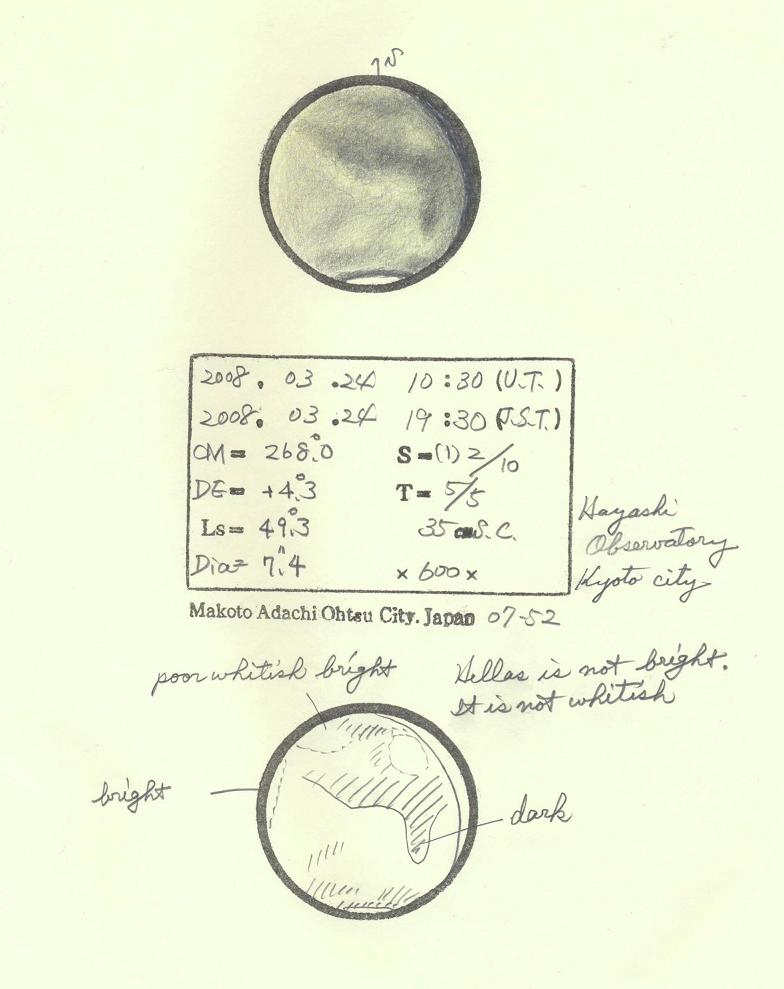 N
2008. 03 .24 10:30 (U.T.)
2008. 03 .24 19:30 (J.S.T.)
CM= 268°.0 S=(1) 2/10
DE= +4°.3 T= 5/5
Ls= 49°.3 35 cm S.C.
Dia= 7".4 × 600 ×
Hayashi
Observatory
Kyoto city
Makoto Adachi Ohtsu City. Japan 07-52
poor whitish bright
Hellas is not bright.
It is not whitish
bright
dark